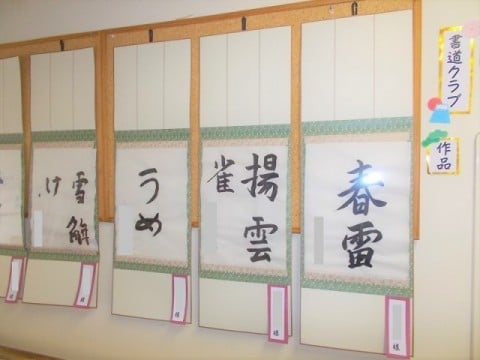 書道クラブ
作品
春雷
揚雲
雀
うめ
雪解
け
様
様
様
様
様